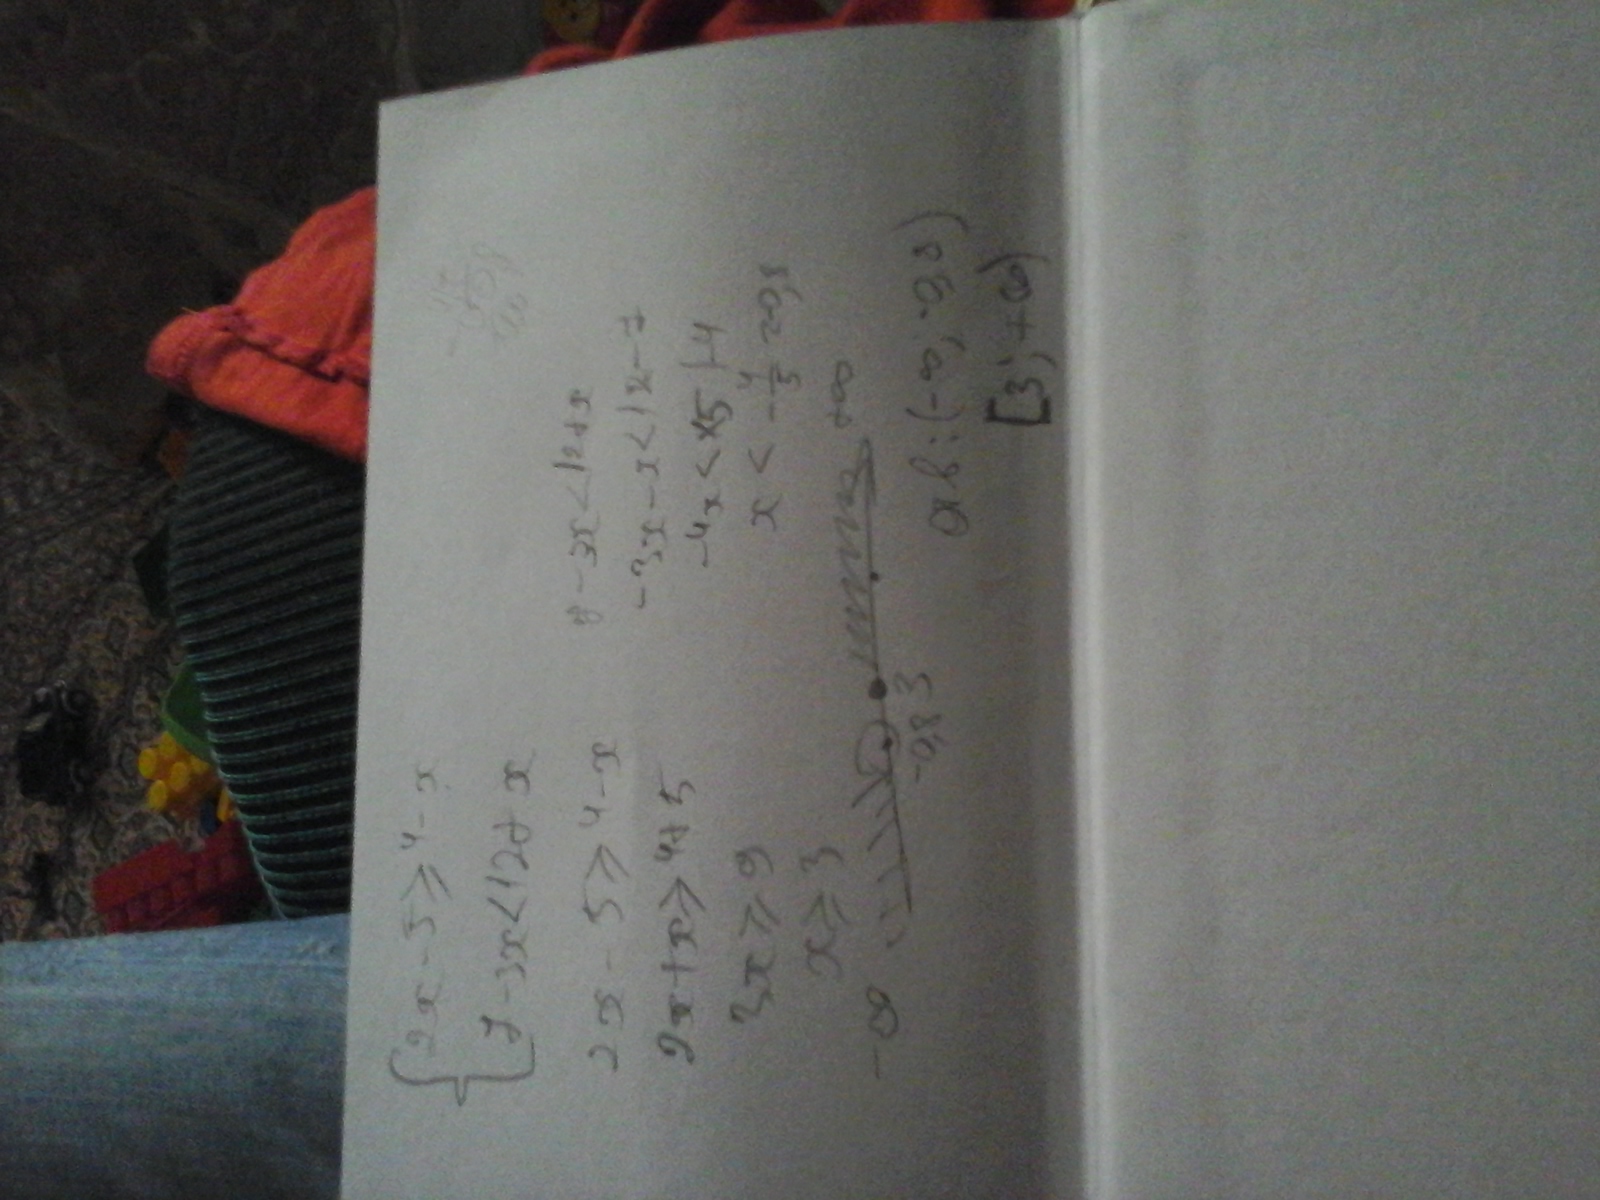 2x - 5 ≥ 4 - x
7 - 3x < 12 + x
2x - 5 ≥ 4 - x
2x + x ≥ 4 + 5
3x ≥ 9
x ≥ 3
7 - 3x < 12 + x
-3x - x < 12 - 7
-4x < 5 | -4
x < -4/5 = 0,8
-∞ +∞
-0,8 3
(-∞; -0,8)
[3; +∞)